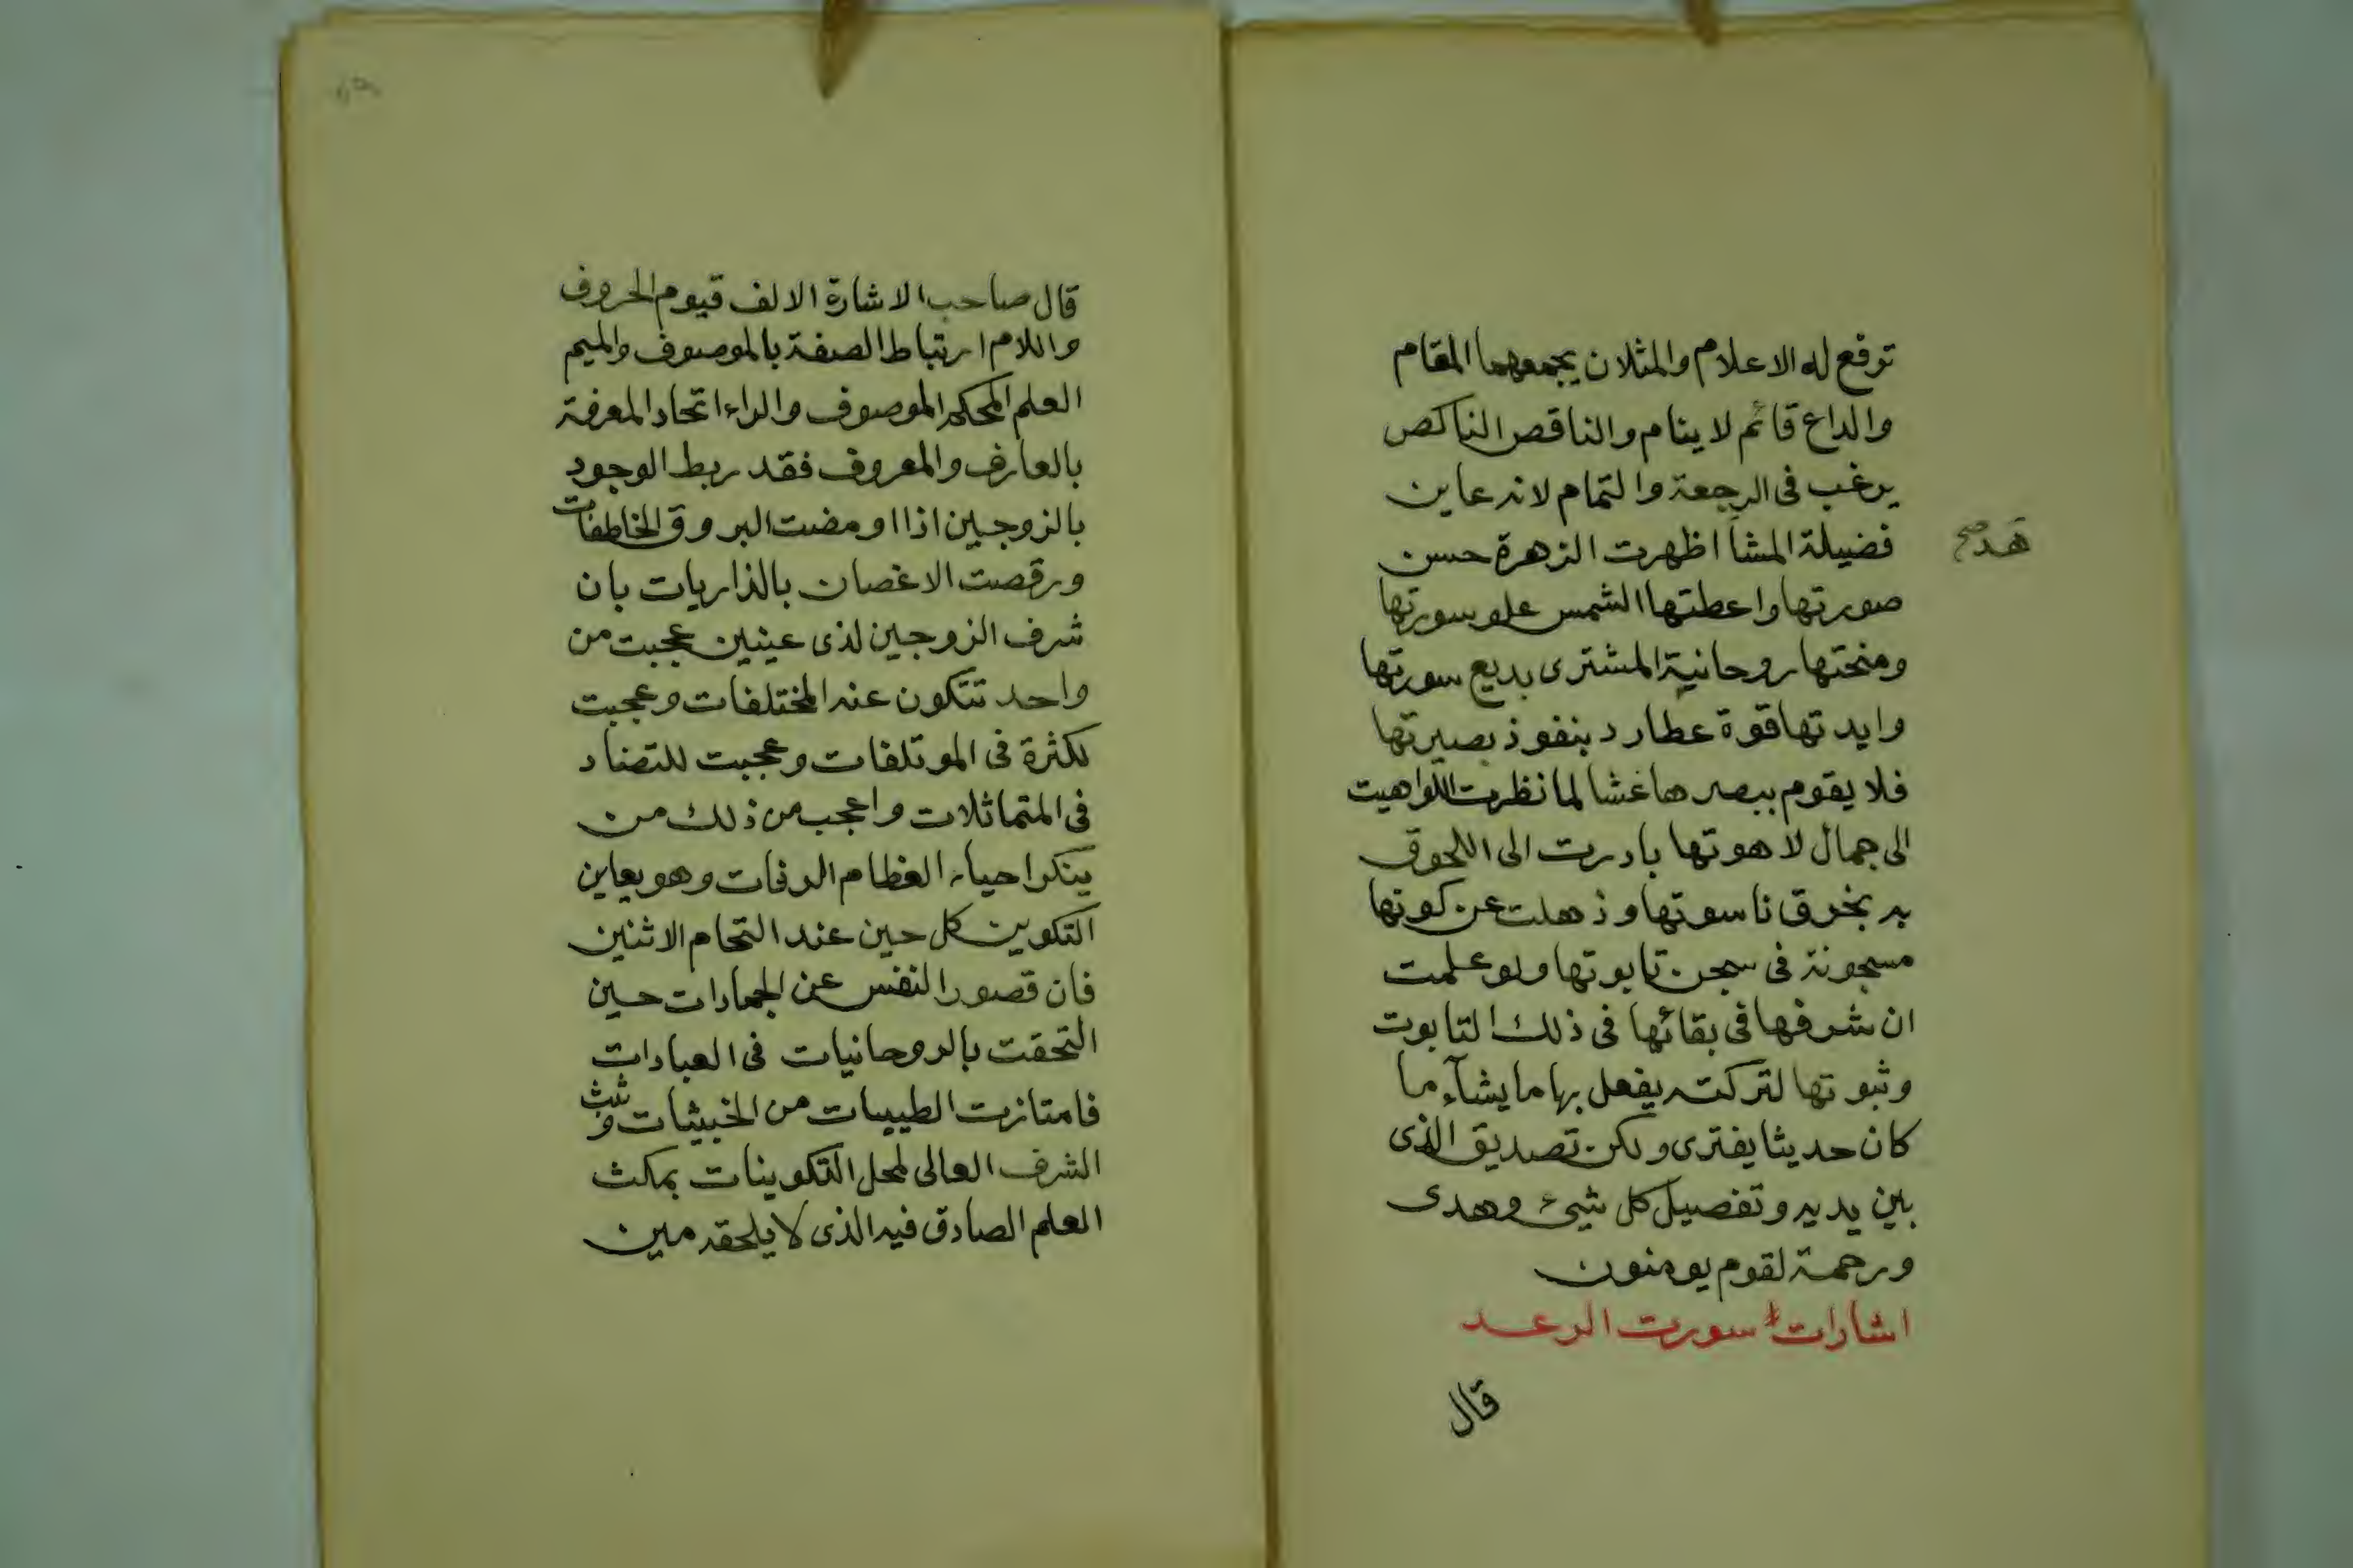 توقع له الاعلام والمثلان يجمعهما المقام
والداع قائم لا ينام والناقص الناكص
يرغب فى الرجعة والتمام لانه عاين
فضيلة المشا اظهرت الزهرة حسن
هد صح
صورتها واعطتها الشمس علو سورتها
ومنحتها روحانية المشترى بديع سورتها
وايدتها قوة عطارد بنفوذ بصيرتها
فلا يقوم ببصرها غشا لما نظرت اللواهيت
الى جمال لاهوتها بادرت الى اللحوق
به بخرق ناسوتها وذهلت عن كونها
مسجونة فى سجن تابوتها ولو علمت
ان شرفها فى بقائها فى ذلك التابوت
وثبوتها لتركته يفعل بها ما يشآء ما
كان حديثا يفترى ولكن تصديق الذى
بين يديه وتفصيل كل شيئ وهدى
ورحمة لقوم يومنون
اشارات سورت الرعد
قال
قال صاحب الاشارة الالف قيوم الحروف
واللام ارتباط الصفة بالموصوف والميم
العلم المحكم الموصوف والراء اتحاد المعرفة
بالعارف والمعروف فقد ربط الوجود
بالزوجين اذا اومضت البروق الخاطفات
ورقصت الاغصان بالذاريات بان
شرف الزوجين لذى عينين عجبت من
واحد تتكون عنه المختلفات وعجبت
لكثرة فى الموتلفات وعجبت للتضاد
فى المتماثلات واعجب من ذلك من
ينكر احياء العظام الرفات وهو يعاين
التكوين كل حين عند التحام الاثنين
فان قصور النفس عن الجمادات حين
التحقت بالروحانيات فى العبادات
فامتازت الطيبات من الخبيثات وثبت
الشرف العالى لمحل التكوينات بمكث
العلم الصادق فيه الذى لا يلحقه مين